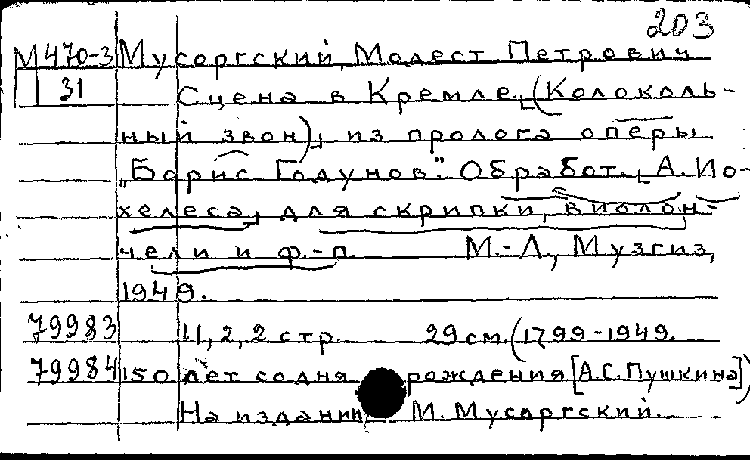 203
М470-3 Мусоргский, Модест Петрович
31 Сцена в Кремле, (Колоколь-
ный звон), из пролога оперы
„Борис Годунов". Обработ. А. Ио-
хелеса, для скрипки, виолон-
чели и ф.-п. М.-Л., Музгиз,
1949.
79983 11, 2, 2 стр. 29 см. (1799-1949.
79984 150 лет со дня рождения [А.С. Пушкина])
На издании М. Мусоргский.